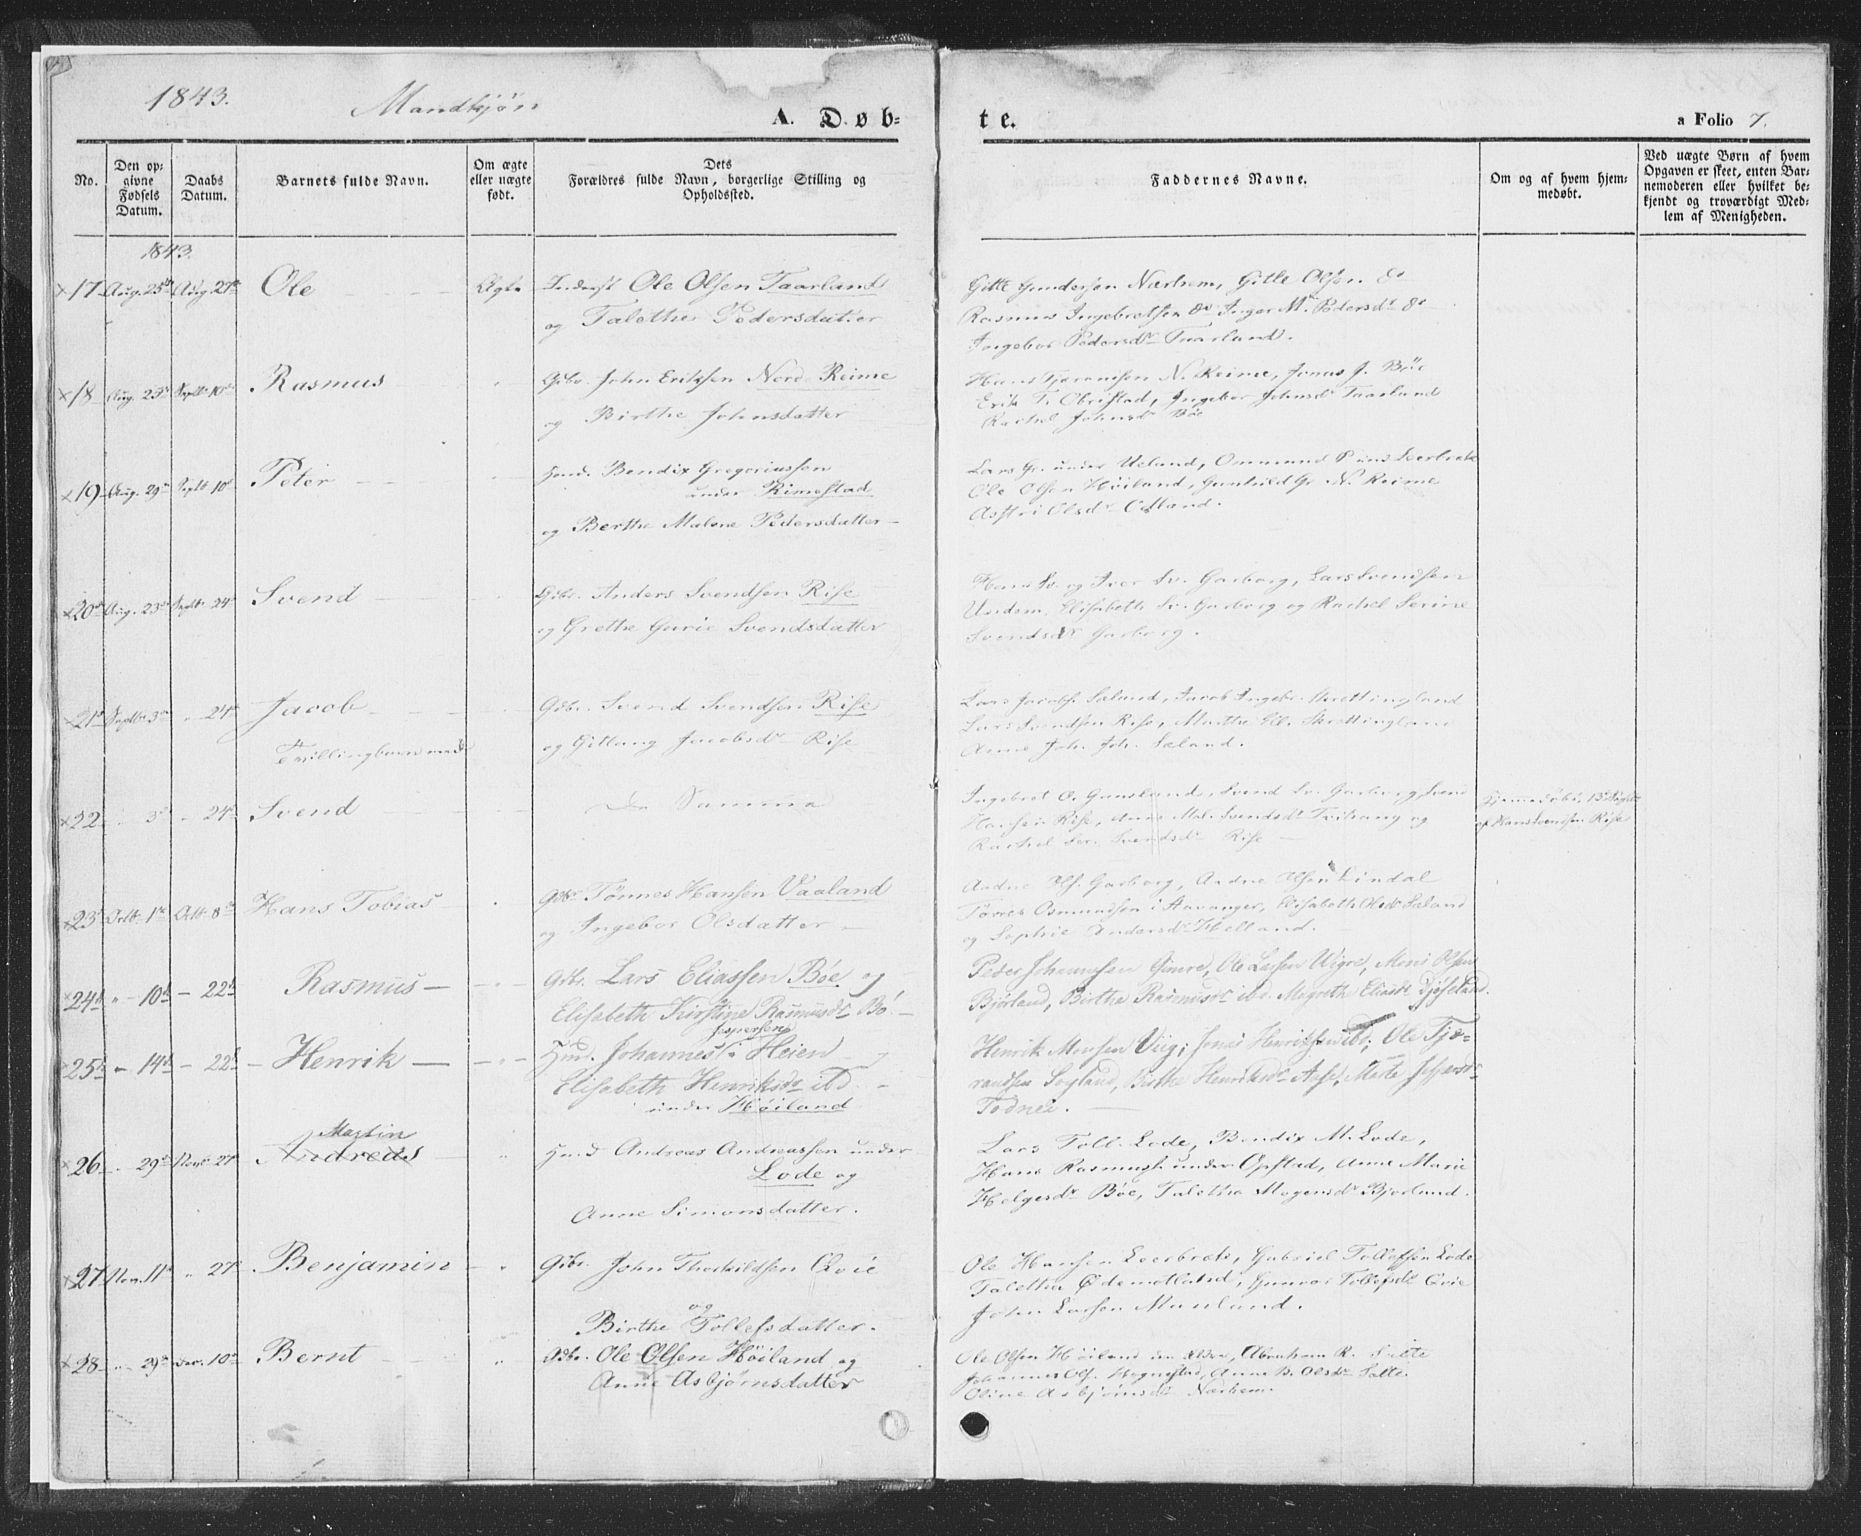 1843.
Mandkjön
A. Døb-
te.
a Folio 7.
No.
Den op-
givne
Fødsels
Datum.
Daabs
Datum.
Barnets fulde Navn.
Om ægte
eller uægte
født.
Dets
Forældres fulde Navn, borgerlige Stilling og
Opholdssted.
Faddernes Navne.
Om og af hvem hjem-
medøbt.
Ved uægte Børn af hvem
Opgaven er skeet, enten Bar-
nemoderen eller hvilket be-
kjendt og troværdigt Med-
lem af Menigheden.
1843.
17 Aug. 25de Aug. 27de Ole Ægte Ole Olsen Taarland
og Talethe Pedersdatter
Gitle Gundersen Nærhem, Gitle Olsen do
Rasmus Ingebretsen do Inger M. Pedersdr do
Ingebor Pedersdr Taarland.
18 Aug. 25de Septbr 10de Rasmus Gdbr. John Eriksen Nord Reime
og Birthe Johnsdatter
N. Reime, Jonas J. Böe
Erik T. Obrestad, Ingebor Johnsdr Taarland
Rachel Johnsdr Böe
19 Aug. 29de Septb 10de Peter Huusd. Bendix Gregoriussen
under Rimestad
og Berthe Malene Pedersdatter
Lars Gr. under Ueland, Ommund P. und. Leerbrek
Ole Olsen Höiland, Gunhild Gr. N. Reime
Astri Olsdr
20 Aug. 23de Septbr 24de Svend Gdbr. Anders Svendsen Rise
og Grethe Gurie Svendsdatter
Hans Sv. og Iver Sv. Garborg, Lars Svendsen
Undem, Elisabeth Sv. Garborg og Rachel Serine
Svendsdr Garborg.
21 Septbr 3de " 24de Jacob Gdbr. Svend Svendsen Rise
Tvillingbarn med og Gitlaug Jacobsdr Rise
Lars Jacobs. Saland, Jacob Ingebr. Skrettingland
Lars Svendsen Rise, Marthe Skrettingland
Anne Joh. Joh. Saland.
22 " 3de " 24de Svend De Samme
Ingebret O. Gunsland, Svend Sv. Garborg, Svend
Hansen Rise, Anne Mal. Svendsdr og
Rachel Ser. Svendsdr Rise
Hjemmedöbt 13 Septbr
af Hans Svendsen Rise
23 Octb. 1ste Octb. 8de Hans Tobias Gdbr Tønnes Hansen Vaaland
og Ingebor Olsdatter
Aadne Ols. Garborg, Aadne Olsen Lindal
Tönnes Osmundsen i Stavanger, Elisabeth Olsdr Saland
og Sophie Andersdr Helland.
24 " 10de 22de Rasmus Gdbr. Lars Eliassen Böe og
Elisabeth Kirstine Rasmusdr Bö.
Peder Johannesen Gimre, Ole Larsen Wigre, Mons Olsen
Bjorland, Birthe Rasmusdr ibd. Magrethe Eliasdr
25 14de 22de Henrik Huusd. Johannes Jespersen Heien og
Elisabeth Henriksdr ibd.
under Höiland
Henrik Monsen Viig, Jonas Henriksen ibd, Ole Tjö-
randsen Sogland, Birthe Henriksdr Aase, Marte Jespersdr
Todnes.
26 " 29de Novbr 27de Martin Andreas Huusd Andreas Andreassen under
Lode og
Anne Simonsdatter.
Lars Toll. Lode, Bendix M. Lode,
Hans Rasmus. under Opstad, Anne Marie
Helgesdr Böe, Taletha Mogensdr Bjorland.
27 Nov. 11te " 27de Benjamin Gdbr. John Thorkildsen Qvie
og
Birthe Tollefsdatter.
Ole Hansen Leerbrek, Gabriel Tollefsen Lode
Taletha Ödemotland, Gunvor Tollefsdr Qvie
John Larsen Maaland.
28 " 29de Dec. 10de Bernt Gdbr. Ole Olsen Höiland og
Anne Asbjörnsdatter
Ole Olsen Höiland den ældre, Abraham R. Salte
Johannes Ols. Hognestad, Anne B. Olsdr Salte
Oline Asbjörnsdr Nærhem.